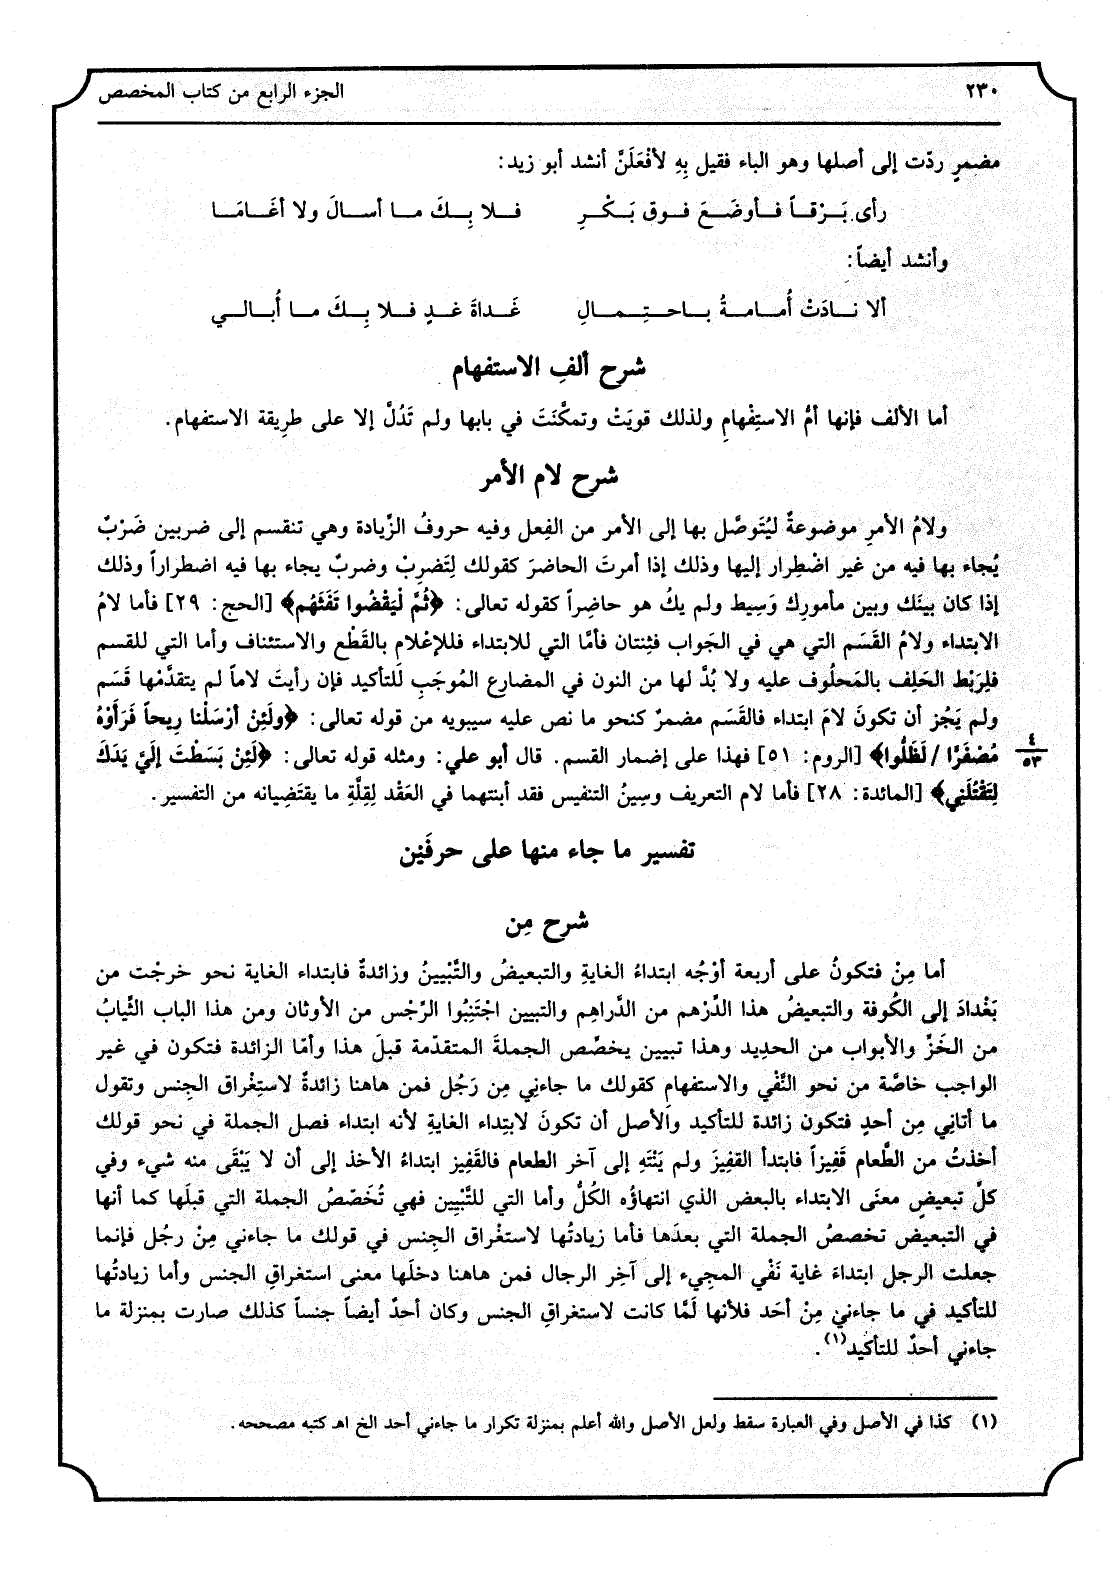 ٢٣٠
الجزء الرابع من كتاب المخصص
مضمرٍ ردّت إلى أصلها وهو الباء فقيل بِهِ لأفْعَلَنَّ أنشد أبو زيد:
رأى بَـرْقـاً فـأوضَـعَ فـوق بَـكْـرِ فـلا بِـكَ مـا أسـالَ ولا أغَـامَـا
وأنشد أيضاً:
ألا نـادَتْ أُمـامـةُ بـاحـتِـمـالِ غَـداةَ غـدٍ فـلا بِـكَ مـا أُبـالـي
شرح ألفِ الاستفهام
أما الألف فإنها أمُّ الاستِفْهامِ ولذلك قويَتْ وتمكَّنَتَ في بابها ولم تَدُلَّ إلا على طريقة الاستفهام.
شرح لام الأمر
ولامُ الأمرِ موضوعةٌ ليُتَوصَّل بها إلى الأمر من الفِعل وفيه حروفُ الزِّيادة وهي تنقسم إلى ضربين ضَرْبٌ
يُجاء بها فيه من غير اضْطِرار إليها وذلك إذا أمرتَ الحاضرَ كقولك لِتَضرِبْ وضربٌ يجاء بها فيه اضطراراً وذلك
إذا كان بينَك وبين مأمورِك وَسِيط ولم يكُ هو حاضِراً كقوله تعالى: ﴿ثُمَّ لْيَقْضُوا تَفَثَهُم﴾ [الحج: ٢٩] فأما لامُ
الابتداء ولامُ القَسَم التي هي في الجَواب فثِنتان فأمَّا التي للابتداء فللإعْلام بالقَطْع والاستئناف وأما التي للقسم
فلِرَبْط الحَلِف بالمَحلُوف عليه ولا بُدَّ لها من النون في المضارع المُوجَبِ للتأكيد فإن رأيتَ لاماً لم يتقدَّمْها قَسَم
ولم يَجُز أن تكونَ لامَ ابتداء فالقَسَم مضمرٌ كنحو ما نص عليه سيبويه من قوله تعالى: ﴿ولَئِنْ أرْسَلْنا رِيحاً فَرَأَوْهُ
مُصْفَرًّا / لَظَلُّوا﴾ [الروم: ٥١] فهذا على إضمار القسم. قال أبو علي: ومثله قوله تعالى: ﴿لَئِنْ بَسَطْتَ إلَيَّ يَدَكَ
٤
٥٣
لِتَقْتُلَنِي﴾ [المائدة: ٢٨] فأما لام التعريف وسِينُ التنفيس فقد أبنتهما في العَقْد لِقِلَّةِ ما يقتَضِيانه من التفسير.
تفسير ما جاء منها على حرفَيْن
شرح مِن
أما مِنْ فتكونُ على أربعة أوْجُه ابتداءُ الغايةِ والتبعيضُ والتَّبْيينُ وزائدةٌ فابتداء الغاية نحو خرجْت من
بَغْدادَ إلى الكُوفة والتبعيضُ هذا الدِّرْهم من الدَّراهِم والتبيين اجْتَنِبُوا الرِّجْس من الأوثان ومن هذا الباب الثِّيابُ
من الخَزّ والأبواب من الحدِيد وهذا تبيين يخصِّص الجملةَ المتقدّمة قبلَ هذا وأمَّا الزائدة فتكون في غير
الواجب خاصَّة من نحو النَّفْي والاستفهام كقولك ما جاءنِي مِن رَجُل فمن هاهنا زائدةٌ لاستِغْراق الجِنس وتقول
ما أتانِي مِن أحدٍ فتكون زائدة للتأكيد والأصل أن تكونَ لابتِداء الغايةِ لأنه ابتداء فصل الجملة في نحو قولك
أخذتُ من الطَّعام قَفِيزاً فابتدأ القفيزَ ولم يَنْتَهِ إلى آخر الطعام فالقَفِيز ابتداءُ الأخذ إلى أن لا يَبْقَى منه شيء وفي
كلِّ تبعيضٍ معنَى الابتداء بالبعض الذي انتهاؤه الكُلُّ وأما التي للتَّبْيِين فهي تُخَصّصُ الجملة التي قبلَها كما أنها
في التبعيض تخصصُ الجملة التي بعدَها فأما زيادتُها لاستغْراق الجِنس في قولك ما جاءني مِنْ رجُل فإنما
جعلت الرجل ابتداءَ غاية نَفْي المجِيء إلى آخِر الرجال فمن هاهنا دخلَها معنى استغراقِ الجنس وأما زيادتُها
للتأكيد في ما جاءني مِنْ أحَد فلأنها لَمَّا كانت لاستغراقِ الجنس وكان أحدٌ أيضاً جنساً كذلك صارت بمنزلة ما
جاءني أحدٌ للتأكيد(١).
(١) كذا في الأصل وفي العبارة سقط ولعل الأصل والله أعلم بمنزلة تكرار ما جاءني أحد الخ اهـ كتبه مصححه.